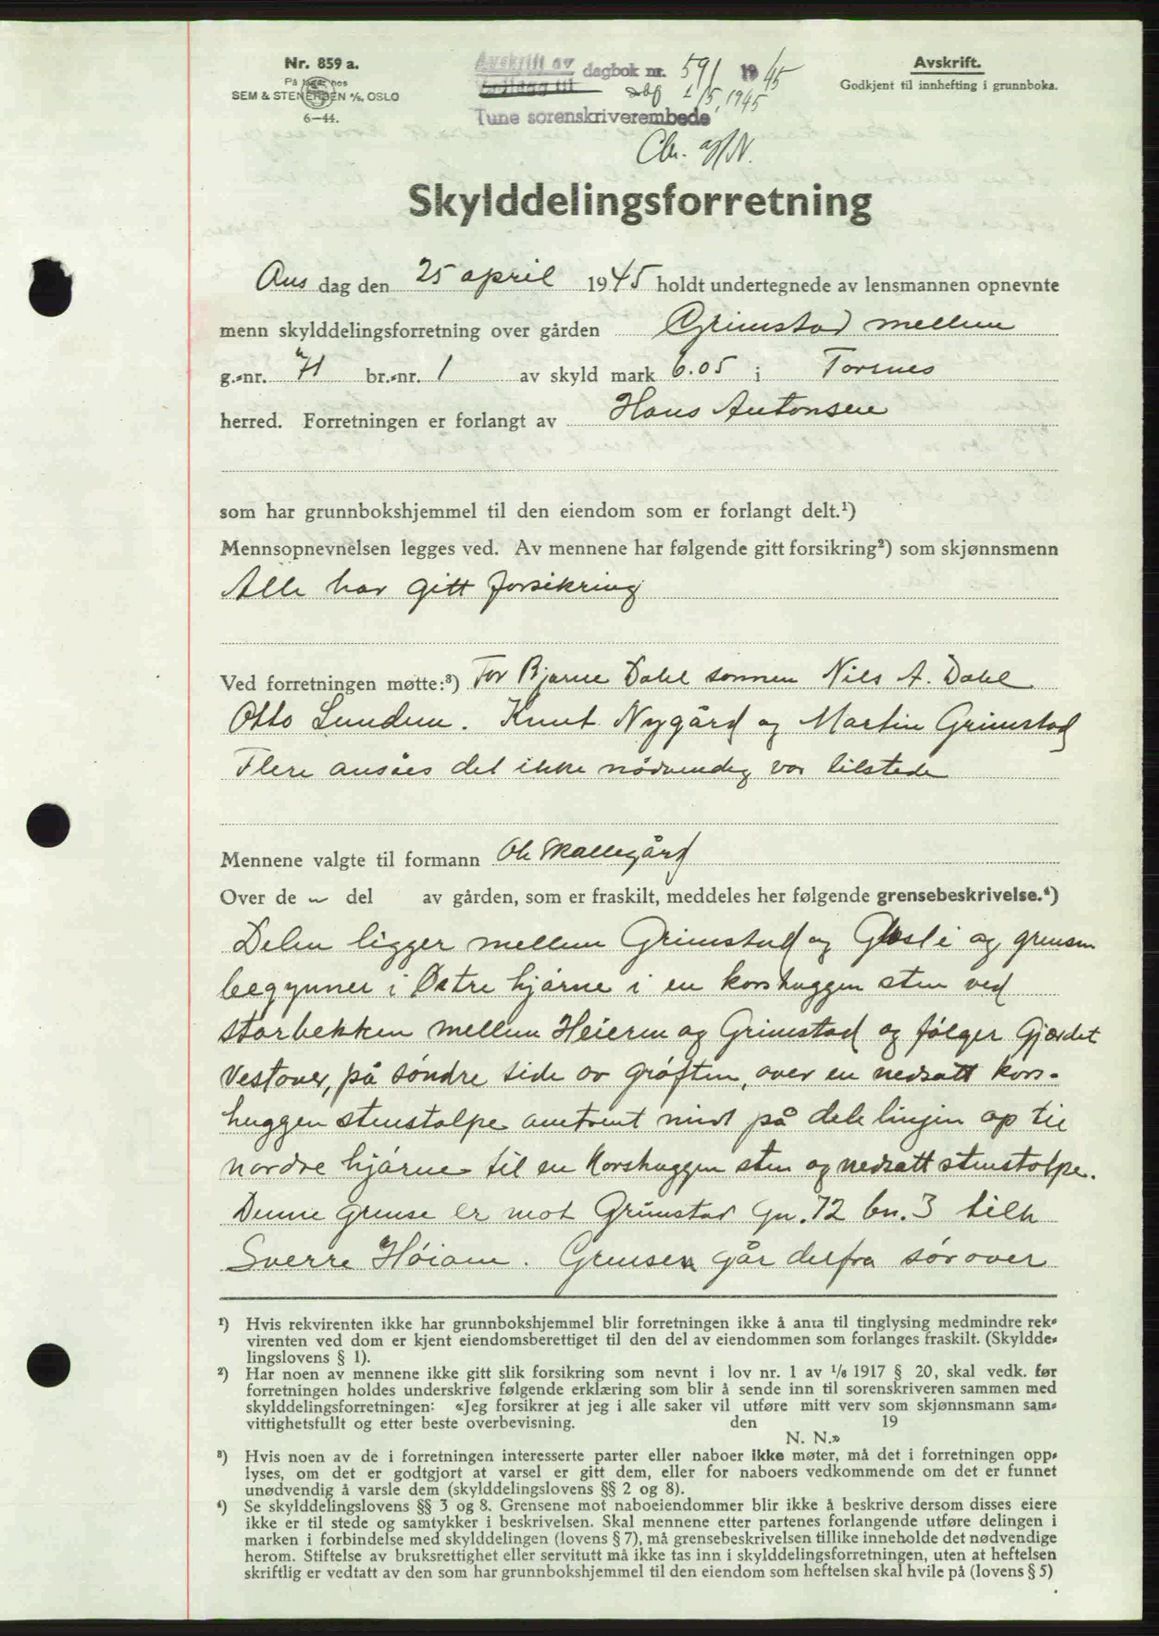 Nr. 859 a.
På lager hos
SEM & STENERSEN A/S, OSLO
6—44.
Avskrift av dagbok nr. 591 1945
dbf 1/5, 1945
Tune sorenskriverembede
Avskrift.
Godkjent til innhefting i grunnboka.
Skylddelingsforretning
Ons dag den 25 april 1945 holdt undertegnede av lensmannen opnevnte
menn skylddelingsforretning over gården Grimstad mellem
g.-nr. 71 br.-nr. 1 av skyld mark 6.05 i Torsnes
herred. Forretningen er forlangt av Hans Antonsen
som har grunnbokshjemmel til den eiendom som er forlangt delt.¹)
Mennsopnevnelsen legges ved. Av mennene har følgende gitt forsikring²) som skjønnsmenn
Alle har gitt forsikring
Ved forretningen møtte:³) For Bjarne Dahl sønnen Nils A. Dahl
Otto Lunden. Knut Nygård og Martin Grimstad
Flere ansåes det ikke nødvendig var tilstede
Mennene valgte til formann Ole Skallegård
Over de n del av gården, som er fraskilt, meddeles her følgende grensebeskrivelse.⁴)
Delen ligger mellem Grimstad og Gosli og grensen
begynner i Østre hjørne i en korshuggen sten ved
storbekken mellem Heieren og Grimstad og følger Gjærdet
vestover, på søndre side av grøften, over en nedsatt kors-
huggen stenstolpe omtrent midt på dele linjen op til
nordre hjørne til en korshuggen sten og nedsatt stenstolpe.
Denne grense er mot Grimstad Gn. 72 bn. 3 tilh
Sverre Høiam. Grensen går derfra sørover
¹) Hvis rekvirenten ikke har grunnbokshjemmel blir forretningen ikke å anta til tinglysing medmindre rek-
virenten ved dom er kjent eiendomsberettiget til den del av eiendommen som forlanges fraskilt. (Skyldde-
lingslovens § 1).
²) Har noen av mennene ikke gitt slik forsikring som nevnt i lov nr. 1 av 1/6 1917 § 20, skal vedk. før
forretningen holdes underskrive følgende erklæring som blir å sende inn til sorenskriveren sammen med
skylddelingsforretningen: «Jeg forsikrer at jeg i alle saker vil utføre mitt verv som skjønnsmann sam-
vittighetsfullt og etter beste overbevisning. den 19
N. N.»
³) Hvis noen av de i forretningen interesserte parter eller naboer ikke møter, må det i forretningen opp-
lyses, om det er godtgjort at varsel er gitt dem, eller for naboers vedkommende om det er funnet
unødvendig å varsle dem (skylddelingslovens §§ 2 og 8).
⁴) Se skylddelingslovens §§ 3 og 8. Grensene mot naboeiendommer blir ikke å beskrive dersom disses eiere
ikke er til stede og samtykker i beskrivelsen. Skal mennene etter partenes forlangende utføre delingen i
marken i forbindelse med skylddelingen (lovens § 7), må grensebeskrivelsen tillike inneholde det nødvendige
herom. Stiftelse av bruksrettighet eller servitutt må ikke tas inn i skylddelingsforretningen, uten at heftelsen
skriftlig er vedtatt av den som har grunnbokshjemmel til den eiendom som heftelsen skal hvile på (lovens § 5)